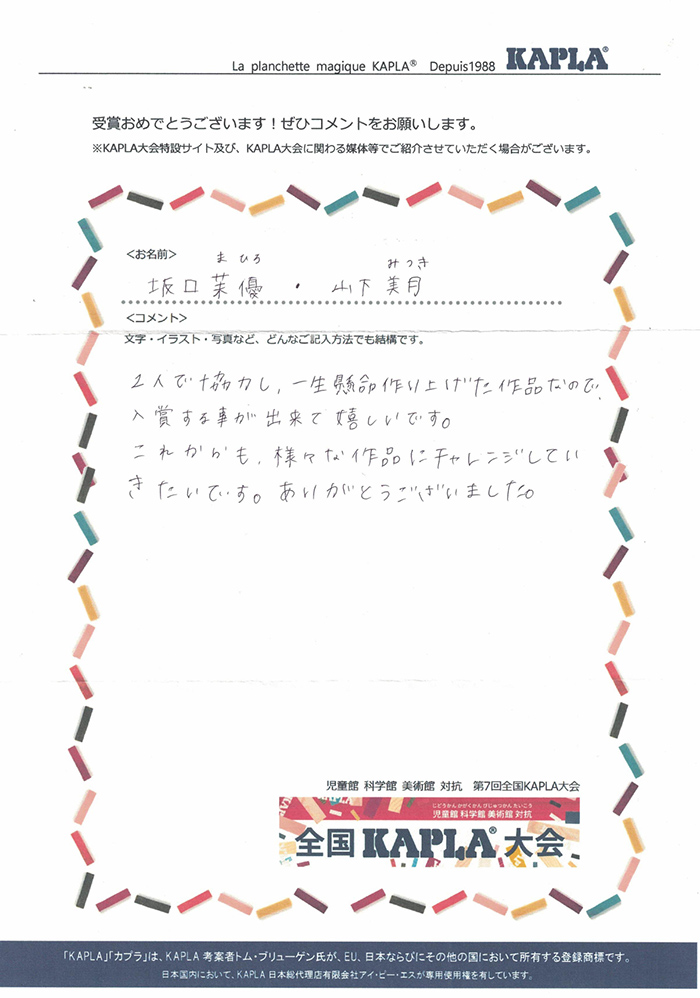 La planchette magique KAPLA® Depuis1988 KAPLA®
受賞おめでとうございます！ぜひコメントをお願いします。
※KAPLA大会特設サイト及び、KAPLA大会に関わる媒体等でご紹介させていただく場合がございます。
<お名前>
まひろ みつき
坂口茉優 ・ 山下美月
<コメント>
文字・イラスト・写真など、どんなご記入方法でも結構です。
2人で協力し、一生懸命作り上げた作品なので、
入賞する事が出来て嬉しいです。
これからも、様々な作品にチャレンジしてい
きたいです。ありがとうございました。
児童館 科学館 美術館 対抗 第7回全国KAPLA大会
じどうかん かがくかん びじゅつかん たいこう
児童館 科学館 美術館 対抗
全国 KAPLA® 大会
「KAPLA」「カプラ」は、KAPLA 考案者トム・ブリューゲン氏が、EU、日本ならびにその他の国において所有する登録商標です。
日本国内において、KAPLA 日本総代理店有限会社アイ・ピー・エスが専用使用権を有しています。